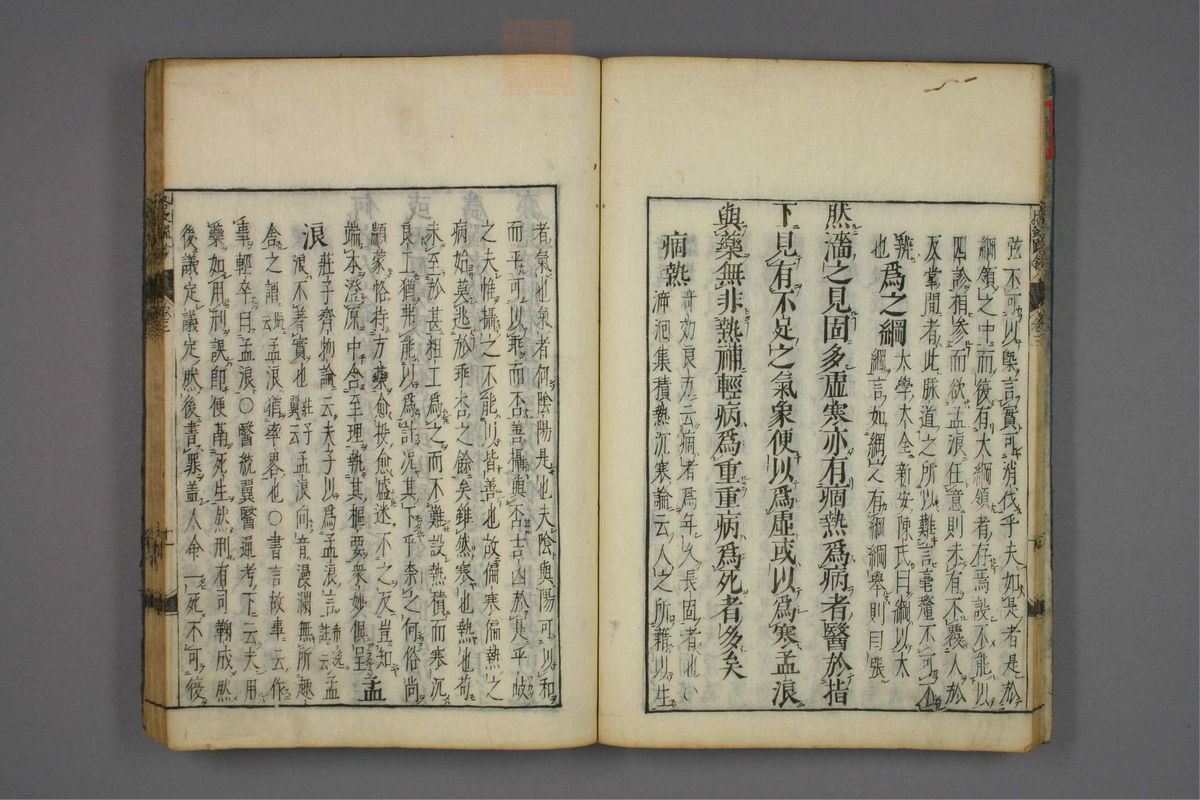 弦不可以槩言實可消伐乎夫如是者是於
綱領之中而後有大綱領者存焉設不能以
四診相參而欲孟浪任意則未有不覆人於
反掌間者此脉道之所以難言毫釐不可不
辨 爲之綱 大學大全新安陳氏曰綱以大
也 綱言如網之有綱綱舉則目張
然濇之見固多虛寒亦有痼熱爲病者醫於指
下見有不足之氣象便以爲虛或以爲寒孟浪
與藥無非熱補輕病爲重重病爲死者多矣
痼熱 奇効良方云痼者爲年久長固者也○
濟洄集積熱沉寒論云人之所藉以生
者氣也氣者何陰陽是也夫陰與陽可以和
而平可以乖而否善攝與否吉凶於是乎歧
之夫惟攝之不能以皆善也故偏寒偏熱之
病始莫逃於乖否之餘矣雖然寒也熱也苟
未至於甚粗工爲之而不難設熱積而寒沉
良工猶弗能以爲計況其下乎柰之何俗尚
顓蒙恪持方藥愈投愈盛迷不之反豈知
端本澄源中含至理執其樞要衆妙俱呈 孟
浪 莊子齊物論云夫子以爲孟浪言 希逸註云孟
浪不著實也 莊子翼云 孟浪向音漫瀾無所趣
舍之謂 云孟浪猶率畧也○書言故事云作
事輕卒曰孟浪○醫統翼醫通考下云夫用
藥如用刑誤即便隔死生然刑有司鞫成然
後議定議定然後書罪盖人命一死不可復